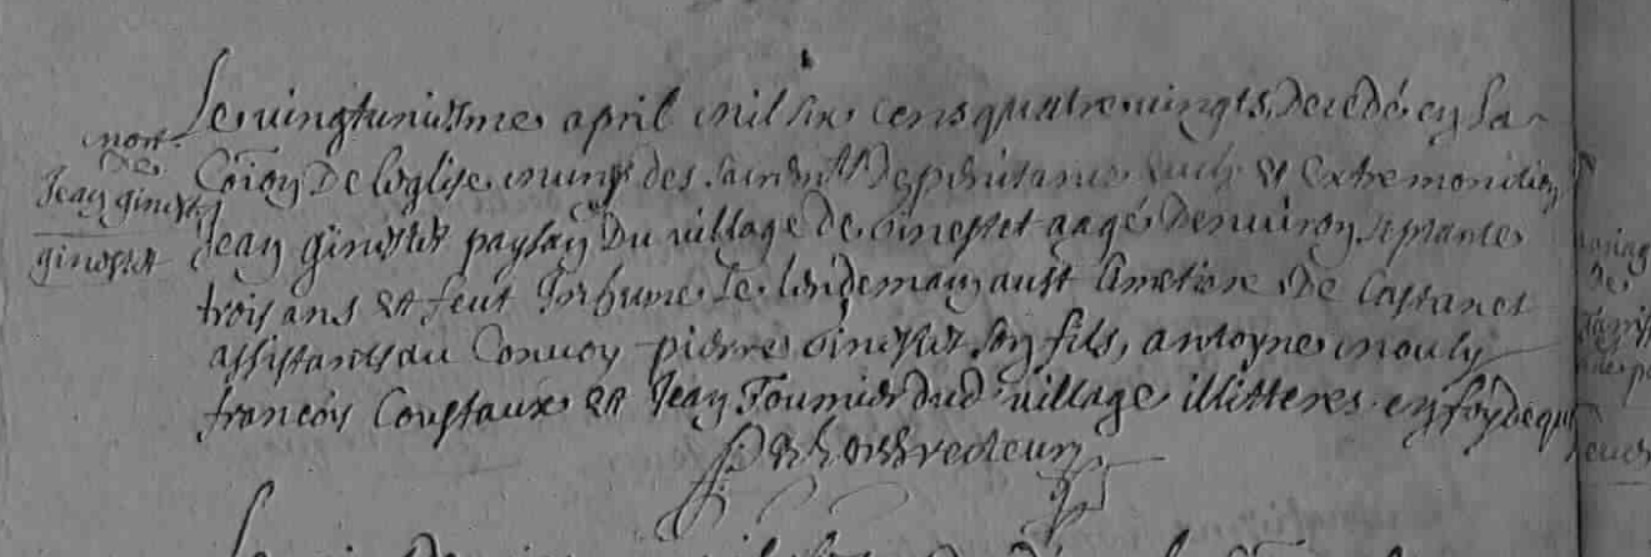 mort
de
Jean ginestet
ginestet
Le vingtuniesme april mil six cens quatre vingts, decedé en la
Coïon De l'eglise muny des sacremts De penitance Euch et extremontion
Jean ginestet paysan Du village De ginestet aagé Denuiron septante
trois ans et feut Inhumé le lendemain aust Cimetiere De Castanet
assistants au Conuoy pierre ginestet son fils, antoyne mouly
francois Coustaux et Jean Fournier dud village illitteres en foy de quoy
recteur